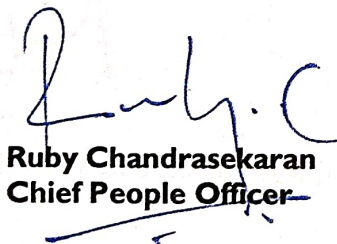 Ruby. C
Ruby Chandrasekaran
Chief People Officer